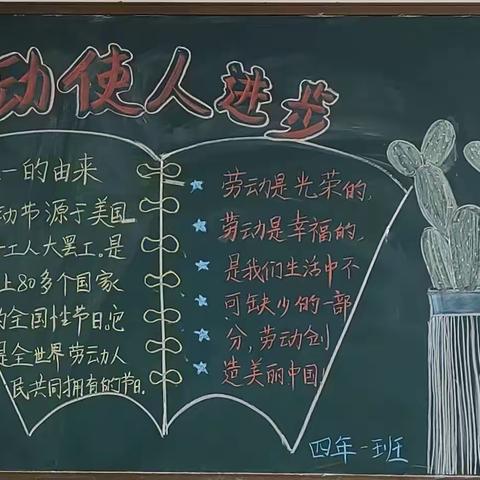 动使人进步
一的由来
动节源于美国
工人大罢工。是
上80多个国家
的全国性节日。它
是全世界劳动人
民共同拥有的节日。
劳动是光荣的,
劳动是幸福的,
是我们生活中不
可缺少的一部
分,劳动创
造美丽中国!
四年一班